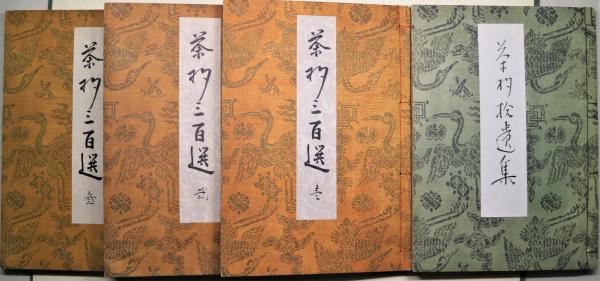 茶杓三百選
壱
茶杓三百選
弐
茶杓三百選
参
茶杓拾遺集